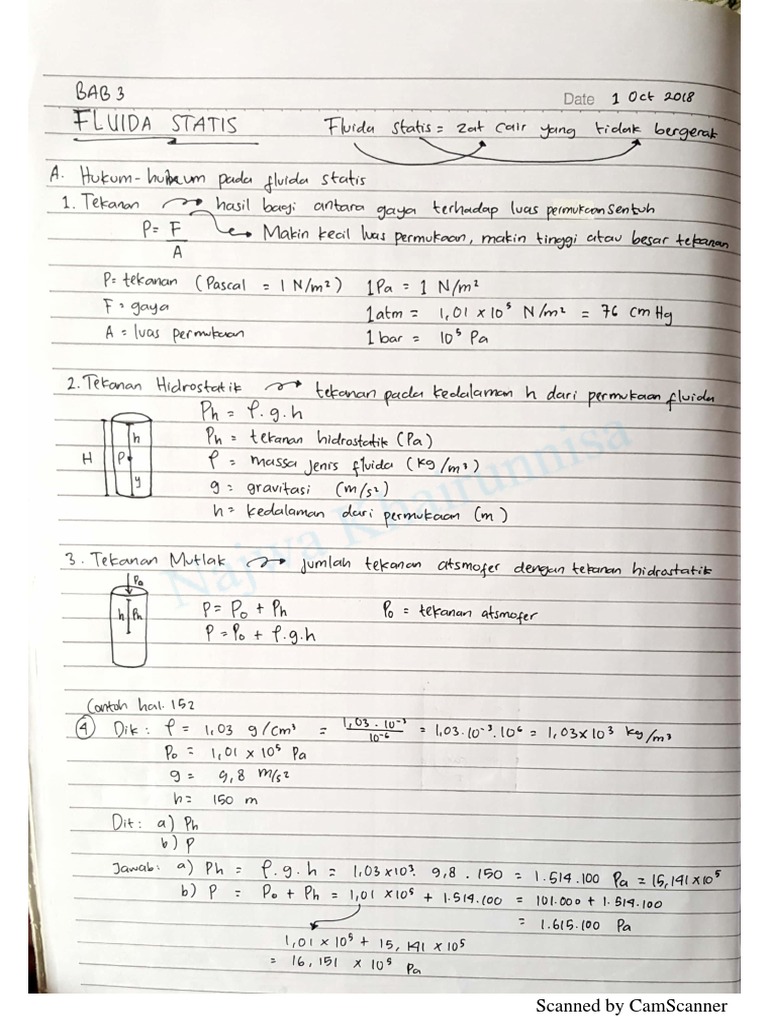 BAB 3
Date 1 Oct 2018
FLUIDA STATIS
Fluida statis = zat cair yang tidak bergerak
A. Hukum-hukum pada fluida statis
1. Tekanan → hasil bagi antara gaya terhadap luas permukaan sentuh
P = F/A → Makin kecil luas permukaan, makin tinggi atau besar tekanan
P = tekanan (Pascal = 1 N/m²) 1 Pa = 1 N/m²
F = gaya 1 atm = 1,01 × 10⁵ N/m² = 76 cmHg
A = luas permukaan 1 bar = 10⁵ Pa
2. Tekanan Hidrostatik → tekanan pada kedalaman h dari permukaan fluida
Ph = ρ.g.h
H h P y
Ph = tekanan hidrostatik (Pa)
ρ = massa jenis fluida (kg/m³)
g = gravitasi (m/s²)
h = kedalaman dari permukaan (m)
Najwa Khairunnisa
3. Tekanan Mutlak → jumlah tekanan atsmofer dengan tekanan hidrostatik
Po
h Ph
P = Po + Ph Po = tekanan atsmofer
P = Po + ρ.g.h
Contoh hal. 152
④ Dik : ρ = 1,03 g/cm³ = 1,03 . 10⁻³/10⁻⁶ = 1,03.10⁻³.10⁶ = 1,03×10³ kg/m³
Po = 1,01 × 10⁵ Pa
g = 9,8 m/s²
h = 150 m
Dit : a) Ph
b) P
Jawab : a) Ph = ρ.g.h = 1,03×10³. 9,8 . 150 = 1.514.100 Pa = 15,141×10⁵
b) P = Po + Ph = 1,01 × 10⁵ + 1.514.100 = 101.000 + 1.514.100
= 1.615.100 Pa
1,01 × 10⁵ + 15,141 × 10⁵
= 16,151 × 10⁵ Pa
Scanned by CamScanner